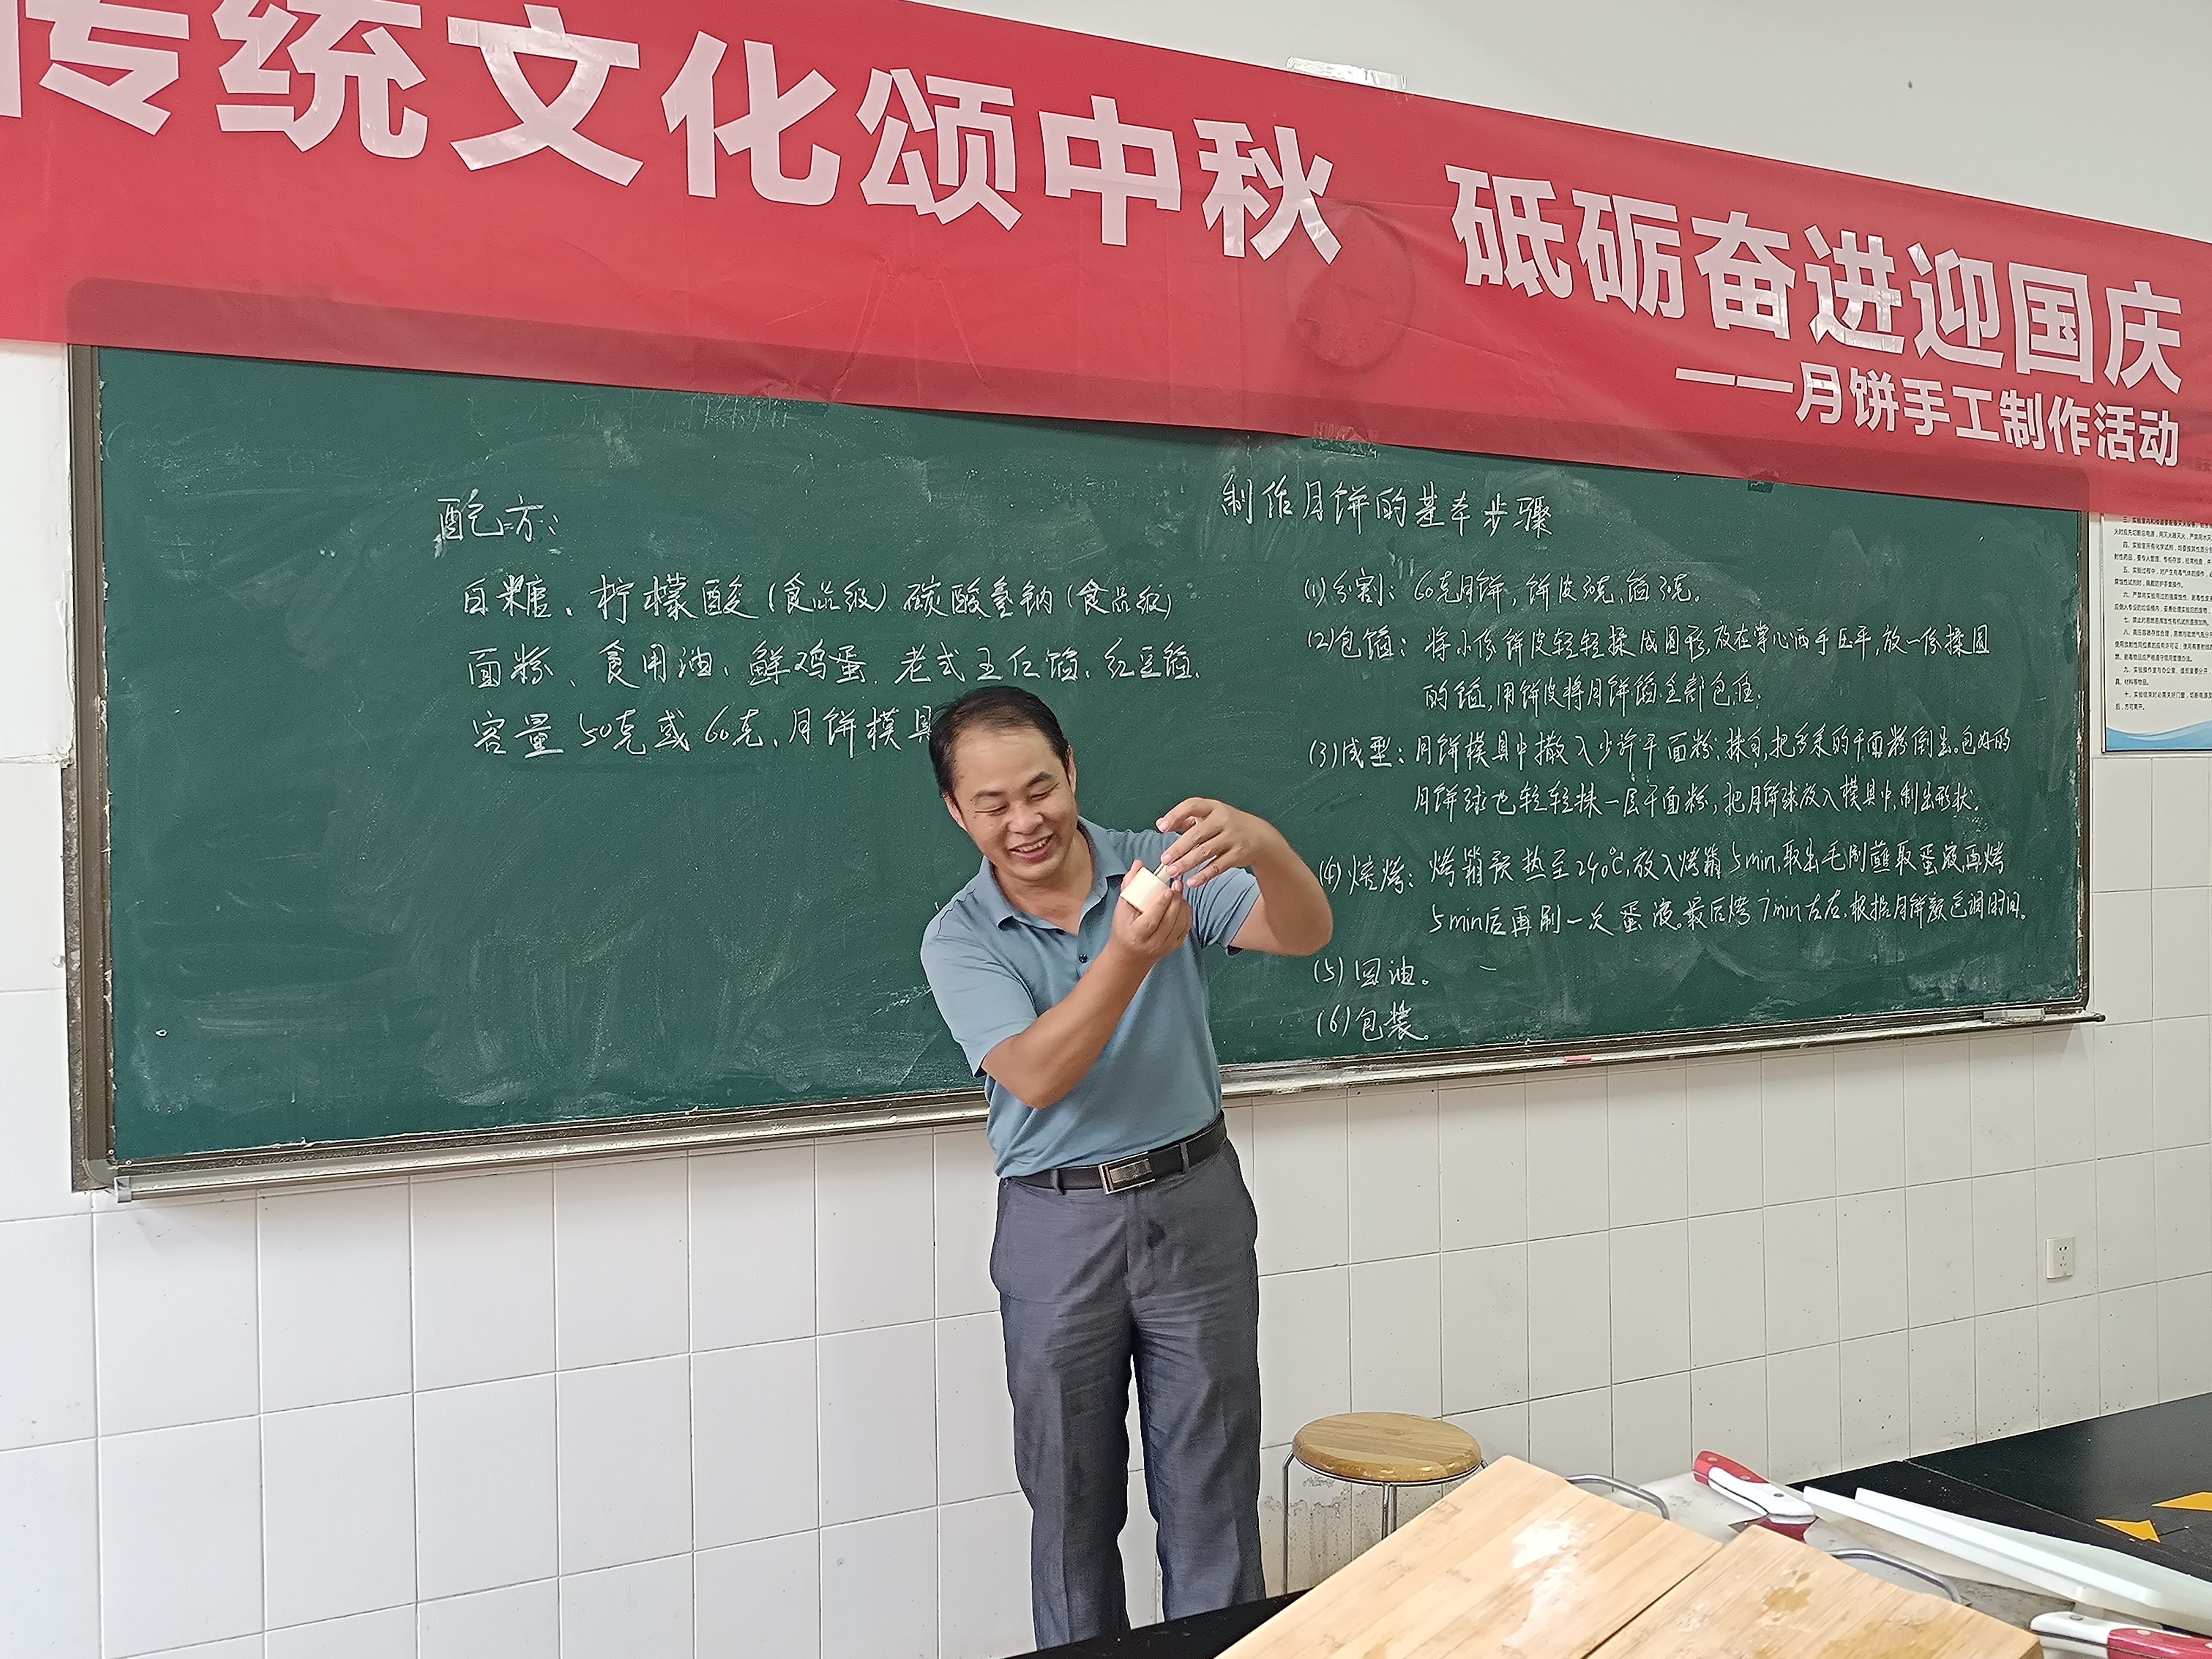 传统文化颂中秋 砥砺奋进迎国庆
——月饼手工制作活动
配方:
白糖、柠檬酸(食品级) 碳酸氢钠(食品级)
面粉、食用油、鲜鸡蛋、老式五仁馅、红豆馅.
容量50克或60克、月饼模具
制作月饼的基本步骤
(1)分割: 60克月饼,饼皮30克,馅30克。
(2)包馅: 将小份饼皮轻轻揉成圆形,放在掌心两手压平,放一份揉圆
的馅,用饼皮将月饼馅全部包住.
(3)成型: 月饼模具中撒入少许干面粉,抹匀,把多余的干面粉倒出。包好的
月饼球也轻轻抹一层干面粉,把月饼球放入模具中,制出形状。
(4)焙烤: 烤箱预热至240℃,放入烤箱5min,取出毛刷蘸取蛋液再烤
5min后再刷一次蛋液。最后烤7min左右,根据月饼颜色调时间。
(5)回油。
(6)包装。